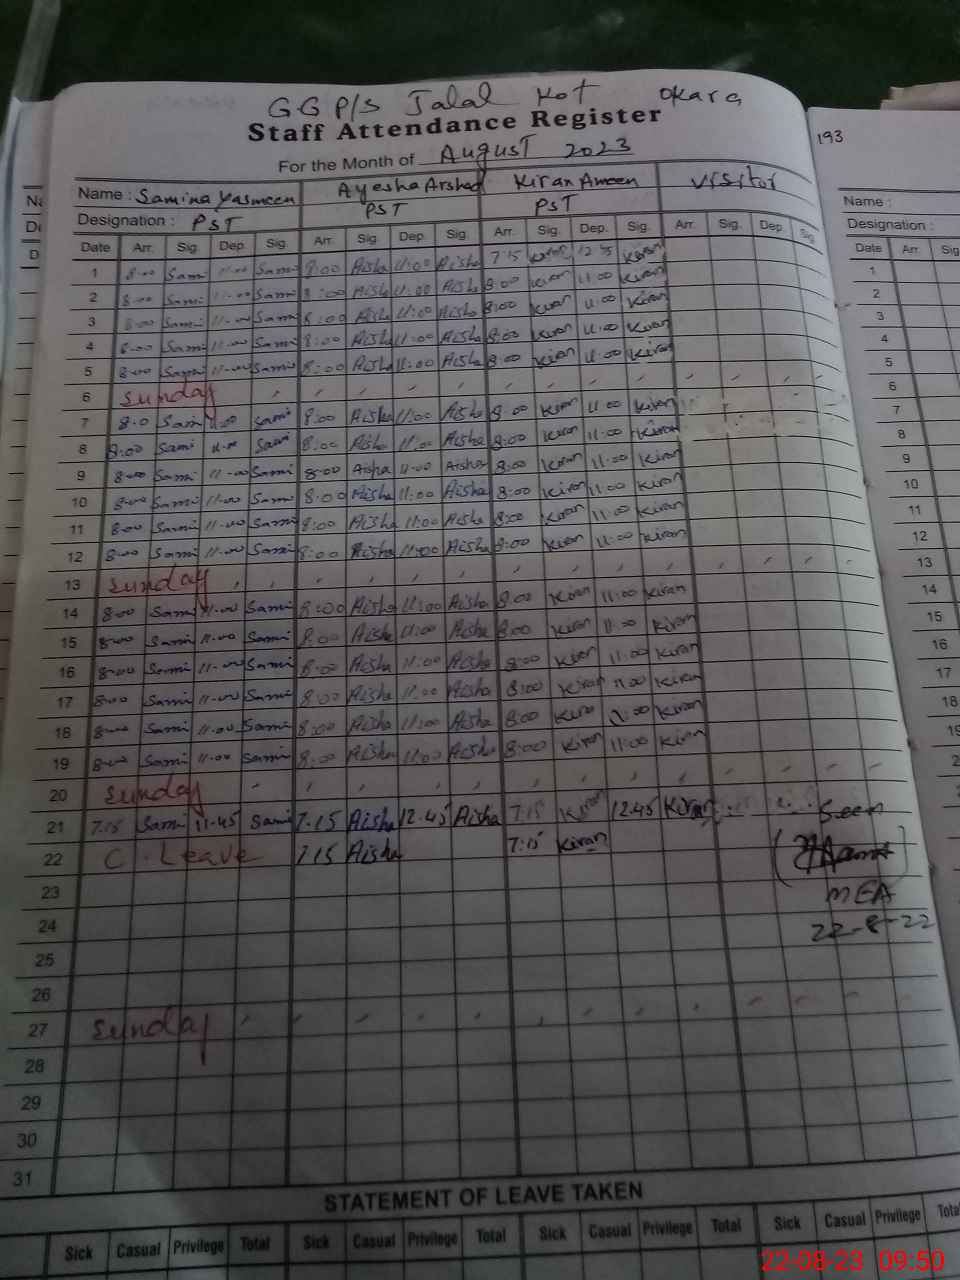 GGP/S Jalal Kot Okara
Staff Attendance Register
193
For the Month of August 2023
Name : Samina Yasmeen Ayesha Arshad Kiran Ameen Visitor
Designation : PST PST PST
Date Arr. Sig. Dep. Sig. Arr. Sig. Dep. Sig. Arr. Sig. Dep. Sig. Arr. Sig. Dep. Sig.
1 8:00 Sami 11:00 Sami 8:00 Aisha 11:00 Aisha 7:15 Kiran Kiran
2 8:00 Sami 11:00 Sami 8:00 Aisha 11:00 Aisha 8:00 Kiran 11:00 Kiran
3 8:00 Sami 11:00 Sami 8:00 Aisha 11:00 Aisha 8:00 Kiran 11:00 Kiran
4 8:00 Sami 11:00 Sami 8:00 Aisha 11:00 Aisha 8:00 Kiran 11:00 Kiran
5 8:00 Sami 11:00 Sami 8:00 Aisha 11:00 Aisha 8:00 Kiran 11:00 Kiran
6 Sunday
7 8:0 Sami 11:00 Sami 8:00 Aisha 11:00 Aisha 8:00 Kiran 11:00 Kiran
8 8:00 Sami 11:00 Sami 8:00 Aisha 11:00 Aisha 8:00 Kiran 11:00 Kiran
9 8:00 Sami 11:00 Sami 8:00 Aisha 11:00 Aisha 8:00 Kiran 11:00 Kiran
10 8:00 Sami 11:00 Sami 8:00 Aisha 11:00 Aisha 8:00 Kiran 11:00 Kiran
11 8:00 Sami 11:00 Sami 8:00 Aisha 11:00 Aisha 8:00 Kiran 11:00 Kiran
12 8:00 Sami 11:00 Sami 8:00 Aisha 11:00 Aisha 8:00 Kiran 11:00 Kiran
13 Sunday
14 8:00 Sami 11:00 Sami 8:00 Aisha 11:00 Aisha 8:00 Kiran 11:00 Kiran
15 8:00 Sami 11:00 Sami 8:00 Aisha 11:00 Aisha 8:00 Kiran 11:00 Kiran
16 8:00 Sami 11:00 Sami 8:00 Aisha 11:00 Aisha 8:00 Kiran 11:00 Kiran
17 8:00 Sami 11:00 Sami 8:00 Aisha 11:00 Aisha 8:00 Kiran 11:00 Kiran
18 8:00 Sami 11:00 Sami 8:00 Aisha 11:00 Aisha 8:00 Kiran 11:00 Kiran
19 8:00 Sami 11:00 Sami 8:00 Aisha 11:00 Aisha 8:00 Kiran 11:00 Kiran
20 Sunday
21 7:15 Sami 11:45 Sami 7:15 Aisha 12:45 Aisha 7:15 Kiran 12:45 Kiran Seen
22 C. Leave 7:15 Aisha 7:15 Kiran
23 MEA
24 22-8-22
25
26
27 Sunday
28
29
30
31
STATEMENT OF LEAVE TAKEN
Sick Casual Privilege Total Sick Casual Privilege Total Sick Casual Privilege Total Sick Casual Privilege Total
22-08-23 09:50
Name :
Designation :
Date Arr. Sig
1
2
3
4
5
6
7
8
9
10
11
12
13
14
15
16
17
18